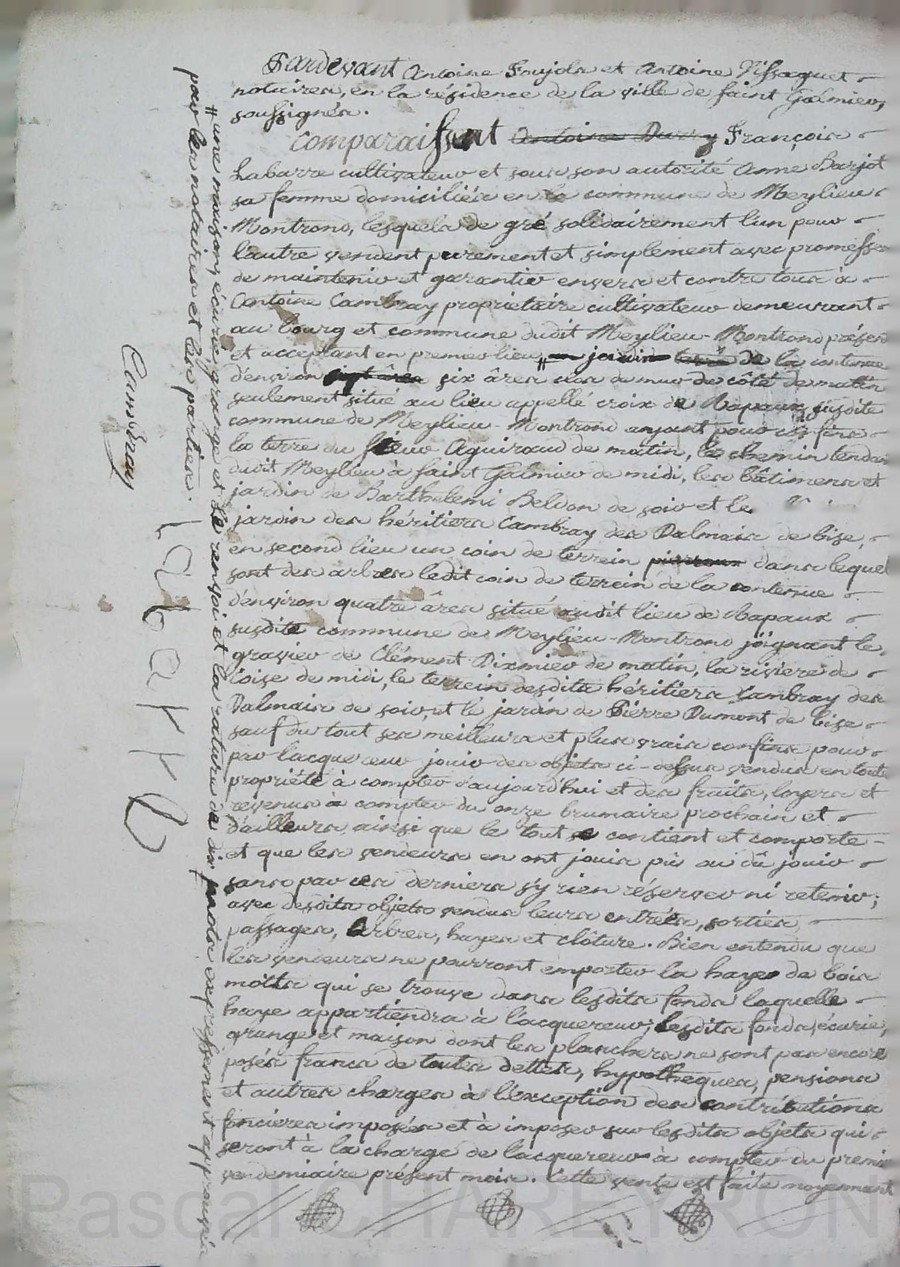 Pardevant Antoine Foujols et Antoine Pissaquet
notaires, en la résidence de la ville de saint Galmier,
soussignés.
Comparaissent Antoine Duvry François
Labarre cultivateur et sous son autorité Anne Barjot
sa femme domiciliés en la commune de Meylieu
Montrond, lesquels de gré solidairement l'un pour
l'autre vendent purement et simplement avec promesse
de maintenir et garantir envers et contre tous à
Antoine Cambray propriétaire cultivateur demeurant
au bourg et commune dudit Meylieu-Montrond présent
et acceptant en premier lieu # un jardin de la contenue
d'environ sept âres six âres clos de mur de côté de matin
seulement situé au lieu appellé croix de Rapaux susdite
commune de Meylieu-Montrond ayant pour confins
la terre du sieur Aguiraud de matin, le chemin tendant
dudit Meylieu à saint Galmier de midi, les bâtimens et
jardin de Barthelemi Beldon de soir et le
jardin des héritiers Cambray des Dalmais de bise,
en second lieu un coin de terrein dans lequel
sont des arbres ledit coin de terrein de la contenue
d'environ quatre âres situé audit lieu de Rapaux
susdite commune de Meylieu-Montrond joignant le
gravier de Clément Dixmier de matin, la rivière de
Coise de midi, le terrein desdits héritiers Cambray des
Dalmais de soir, et le jardin de Pierre Dumont de bise
sauf du tout ses meilleurs et plus vrais confins pour
par l'acquereur jouir des objets ci-dessus vendus en toute
propriété à compter d'aujourd'hui et des fruits, loyers et
revenus à compter du onze brumaire prochain et
d'ailleurs, ainsi que le tout se contient et comporte
et que les vendeurs en ont joui pu ou dû jouir
sans par ces derniers s'y rien réserver ni retenir;
avec desdits objets vendus leurs entrées, sorties,
passages, arbres, hayes et clôture. Bien entendu que
les vendeurs ne pourront emporter la haye de bois
morts qui se trouve dans lesdits fonds laquelle
haye appartiendra à l'acquereur; lesdits fonds, écurie,
grange et maison dont les planchers ne sont pas encore
posés francs de toutes dettes, hypotheques, pensions
et autres charges à l'exception des contributions
foncieres imposées et à imposer sur lesdits objets qui
seront à la charge de l'acquereur à compter du premier
vendemiaire présent mois. Cette vente est faite moyennant
# une maison, écurie, grange et Le renvoi et la rature de six mots expressement approuvés
par les notaires et les parties.
Cambray
Labarre
Pascal CHAREYRON